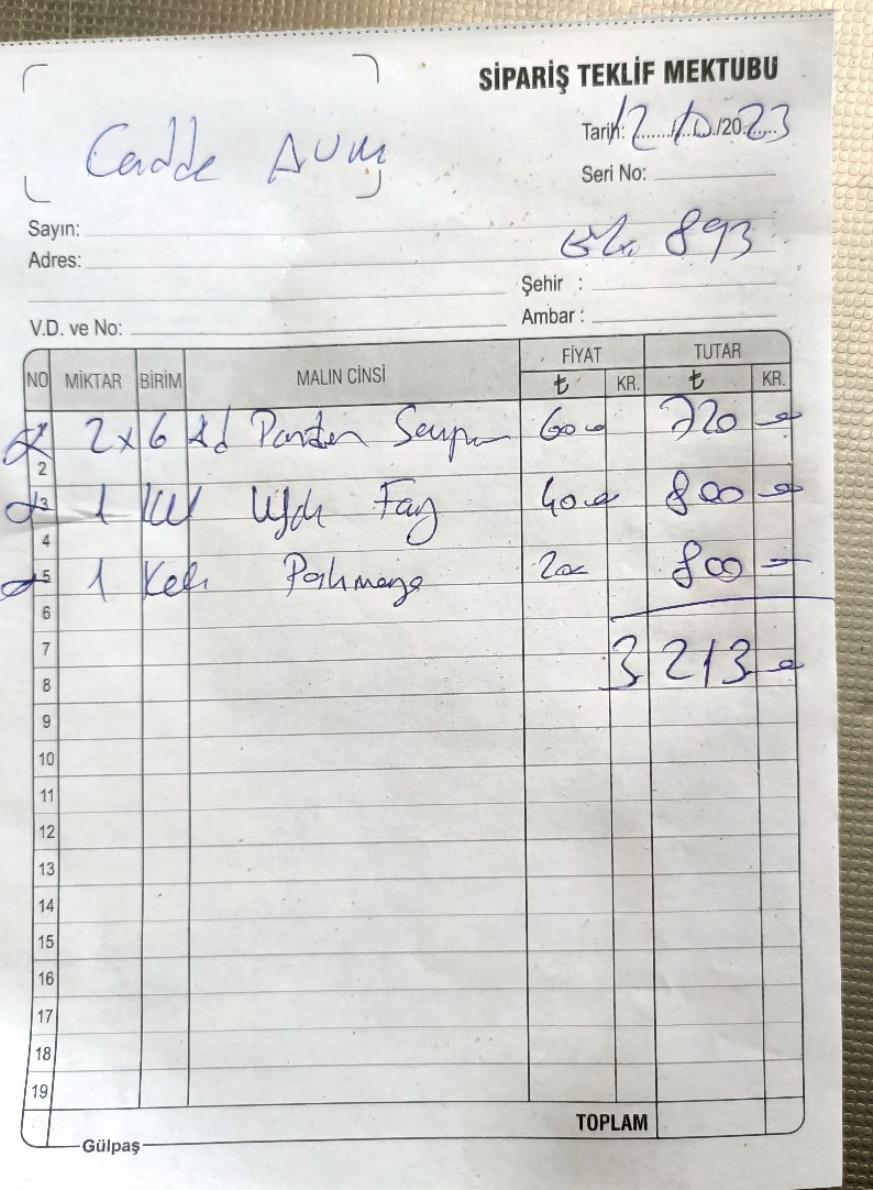 SİPARİŞ TEKLİF MEKTUBU
Cadde AVM
Tarih: 12/10/2023
Seri No:
Sayın:
893
Adres:
Şehir :
Ambar :
V.D. ve No:
NO MİKTAR BİRİM MALIN CİNSİ FİYAT ₺ KR. TUTAR ₺ KR.
2x6 Ad 60 720
2
3 1 400 800
4
5 1 Koli 200 800
6
7 3213
8
9
10
11
12
13
14
15
16
17
18
19
TOPLAM
Gülpaş